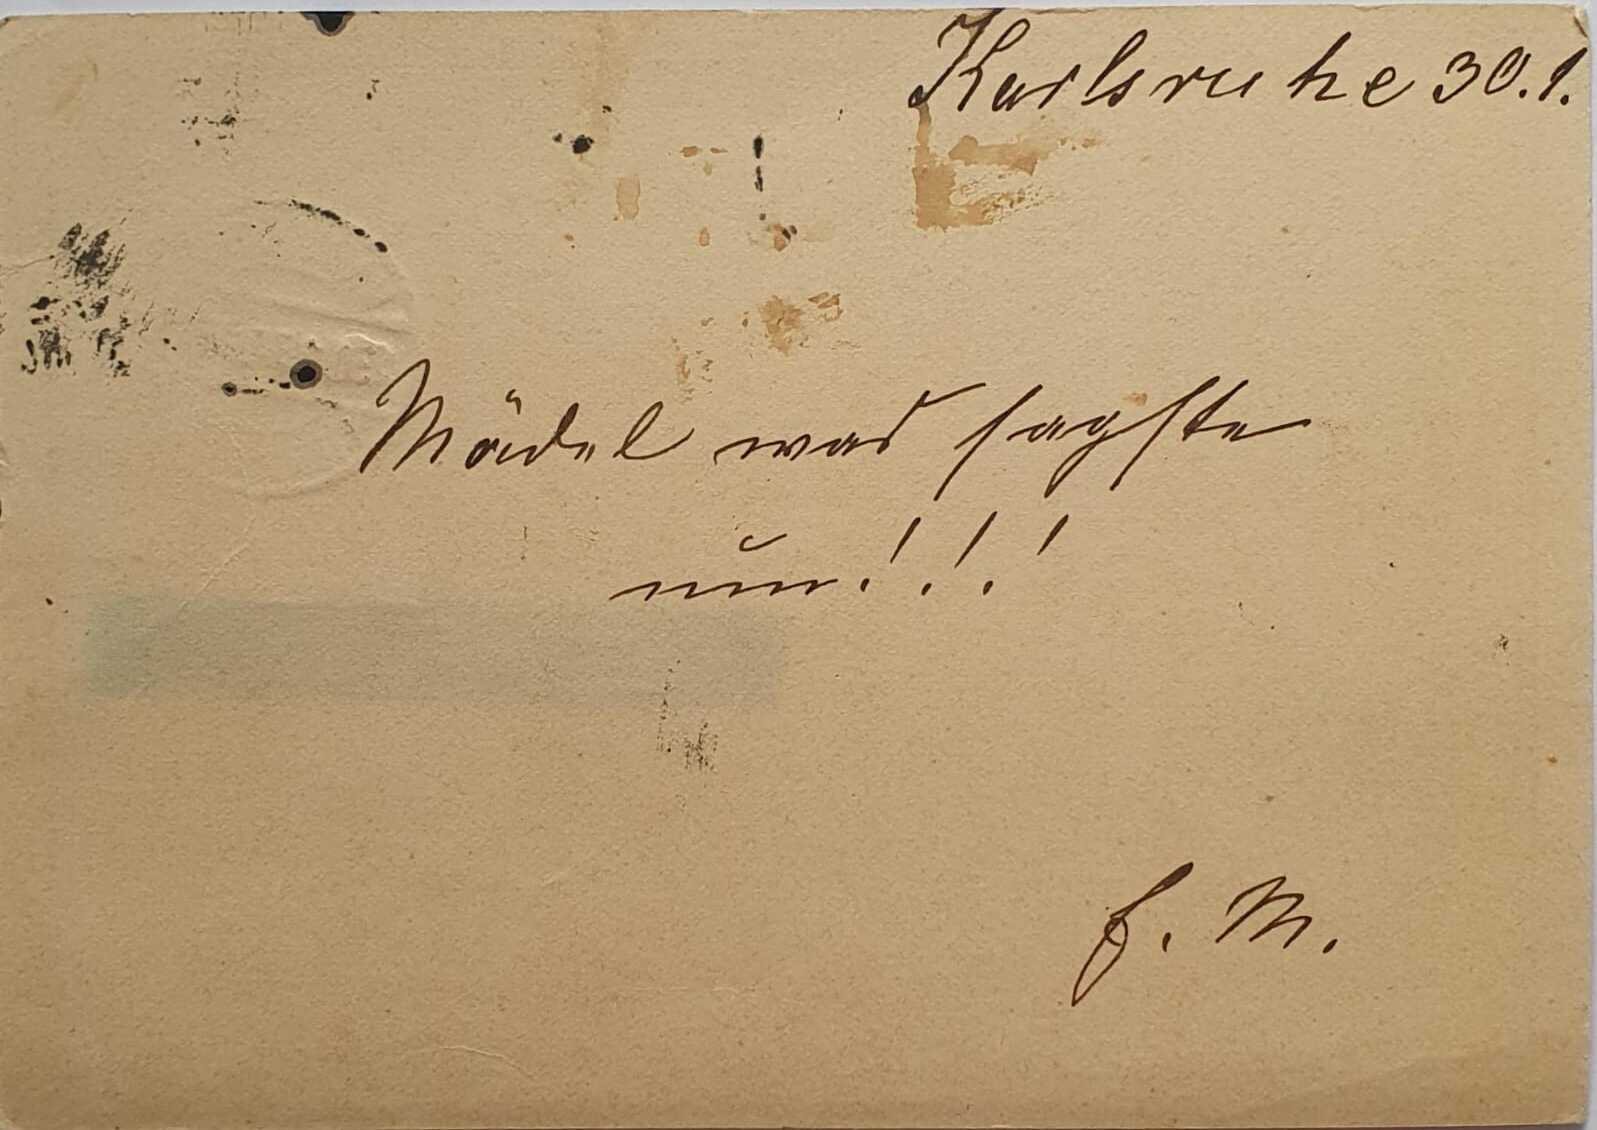 Karlsruhe 30.1.
Mädel was sagste
nun!!!
f. M.